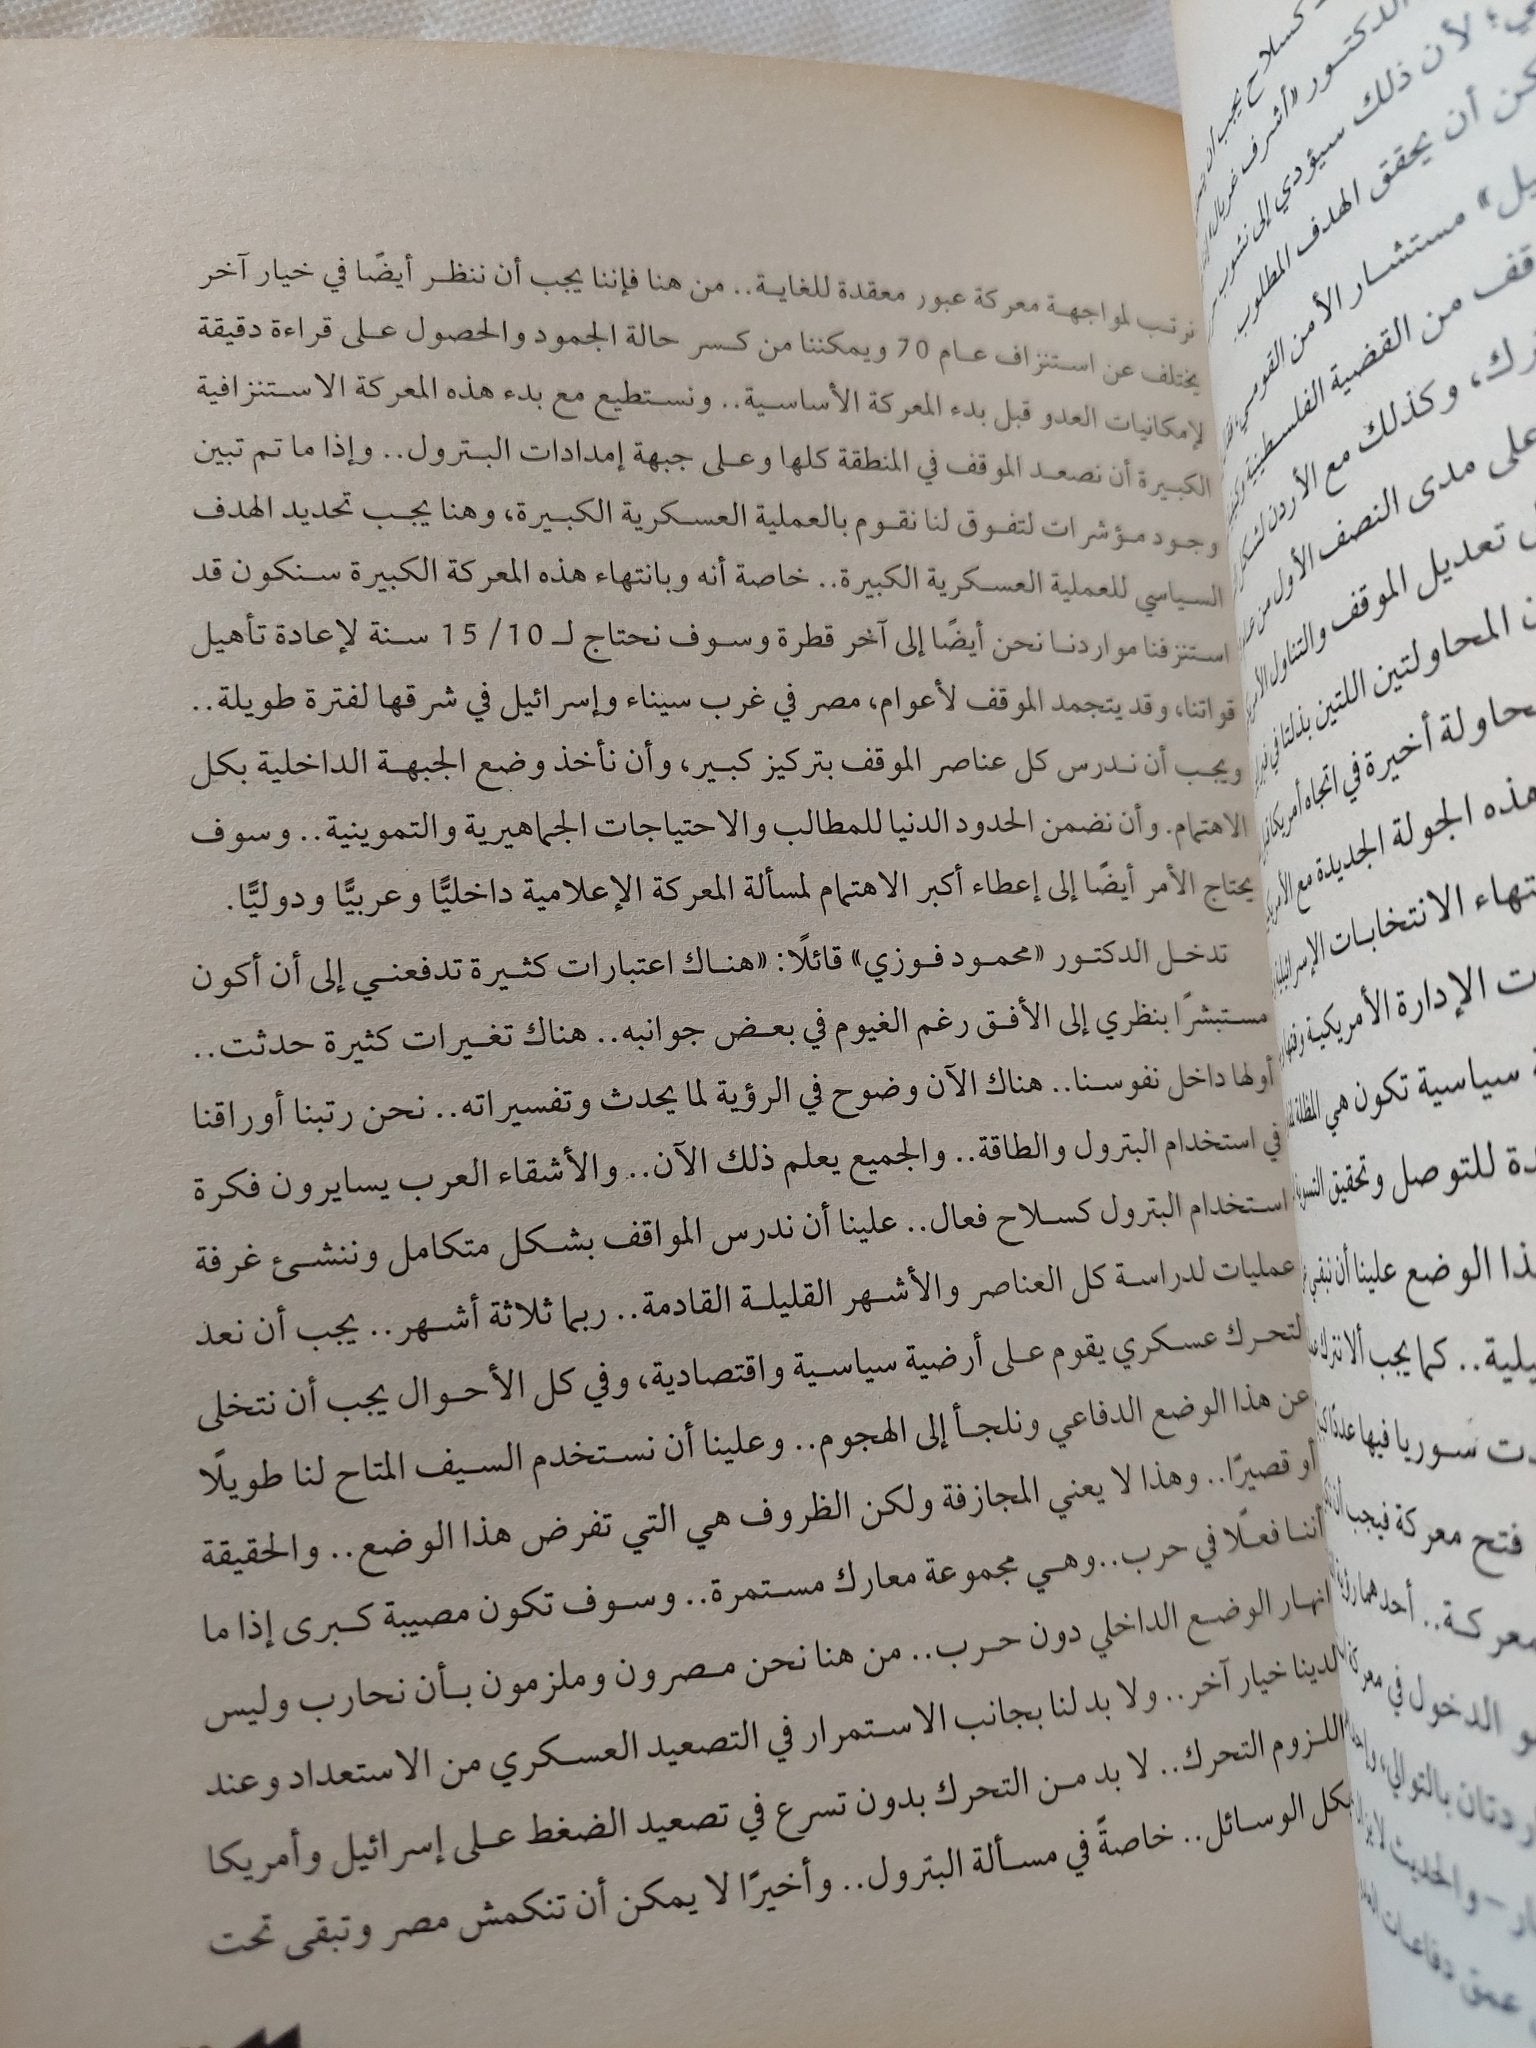 نرتب لمواجهة معركة عبور معقدة للغاية.. من هنا فإننا يجب أن ننظر أيضًا في خيار آخر
يختلف عن استنزاف عام 70 ويمكننا من كسر حالة الجمود والحصول على قراءة دقيقة
لإمكانيات العدو قبل بدء المعركة الأساسية.. ونستطيع مع بدء هذه المعركة الاستنزافية
الكبيرة أن نصعد الموقف في المنطقة كلها وعلى جبهة إمدادات البترول.. وإذا ما تم تبين
وجود مؤشرات لتفوق لنا نقوم بالعملية العسكرية الكبيرة، وهنا يجب تحديد الهدف
السياسي للعملية العسكرية الكبيرة.. خاصة أنه وبانتهاء هذه المعركة الكبيرة سنكون قد
استنزفنا مواردنا نحن أيضًا إلى آخر قطرة وسوف نحتاج لـ 10/ 15 سنة لإعادة تأهيل
قواتنا، وقد يتجمد الموقف لأعوام، مصر في غرب سيناء وإسرائيل في شرقها لفترة طويلة..
ويجب أن ندرس كل عناصر الموقف بتركيز كبير، وأن نأخذ وضع الجبهة الداخلية بكل
الاهتمام. وأن نضمن الحدود الدنيا للمطالب والاحتياجات الجماهيرية والتموينية.. وسوف
يحتاج الأمر أيضًا إلى إعطاء أكبر الاهتمام لمسألة المعركة الإعلامية داخليًّا وعربيًّا ودوليًّا.
تدخل الدكتور «محمود فوزي» قائلًا: «هناك اعتبارات كثيرة تدفعني إلى أن أكون
مستبشرًا بنظري إلى الأفق رغم الغيوم في بعض جوانبه.. هناك تغيرات كثيرة حدثت..
أولها داخل نفوسنا.. هناك الآن وضوح في الرؤية لما يحدث وتفسيراته.. نحن رتبنا أوراقنا
في استخدام البترول والطاقة.. والجميع يعلم ذلك الآن.. والأشقاء العرب يسايرون فكرة
استخدام البترول كسلاح فعال.. علينا أن ندرس المواقف بشكل متكامل وننشئ غرفة
عمليات لدراسة كل العناصر والأشهر القليلة القادمة.. ربما ثلاثة أشهر.. يجب أن نعد
لتحرك عسكري يقوم على أرضية سياسية واقتصادية، وفي كل الأحوال يجب أن نتخلى
عن هذا الوضع الدفاعي ونلجأ إلى الهجوم.. وعلينا أن نستخدم السيف المتاح لنا طويلًا
أو قصيرًا.. وهذا لا يعني المجازفة ولكن الظروف هي التي تفرض هذا الوضع.. والحقيقة
أننا فعلًا في حرب..وهي مجموعة معارك مستمرة.. وسوف تكون مصيبة كبرى إذا ما
انهار الوضع الداخلي دون حرب.. من هنا نحن مصرون وملزمون بأن نحارب وليس
لدينا خيار آخر.. ولا بد لنا بجانب الاستمرار في التصعيد العسكري من الاستعداد وعند
اللزوم التحرك.. لا بد من التحرك بدون تسرع في تصعيد الضغط على إسرائيل وأمريكا
بكل الوسائل.. خاصةً في مسألة البترول.. وأخيرًا لا يمكن أن تنكمش مصر وتبقى تحت
كسلاح يجب أن
الدكتور «أشرف غربال»
لأن ذلك سيؤدي إلى نشوب
أن يحقق الهدف المطلوب
مستشار الأمن القومي
من القضية الفلسطينية
وكذلك مع الأردن
على مدى النصف الأول من
تعديل الموقف والتناول
المحاولتين اللتين بذلتا في
أخيرة في اتجاه أمريكا
هذه الجولة الجديدة مع
الانتخابات
الإدارة الأمريكية
سياسية تكون هي المظلة
للتوصل وتحقيق
الوضع علينا أن نبقي
كما يجب ألا نترك
سوريا فيها
فتح معركة فيجب
أحدهما
الدخول في
بالتوالي
والحديث لا
دفاعات